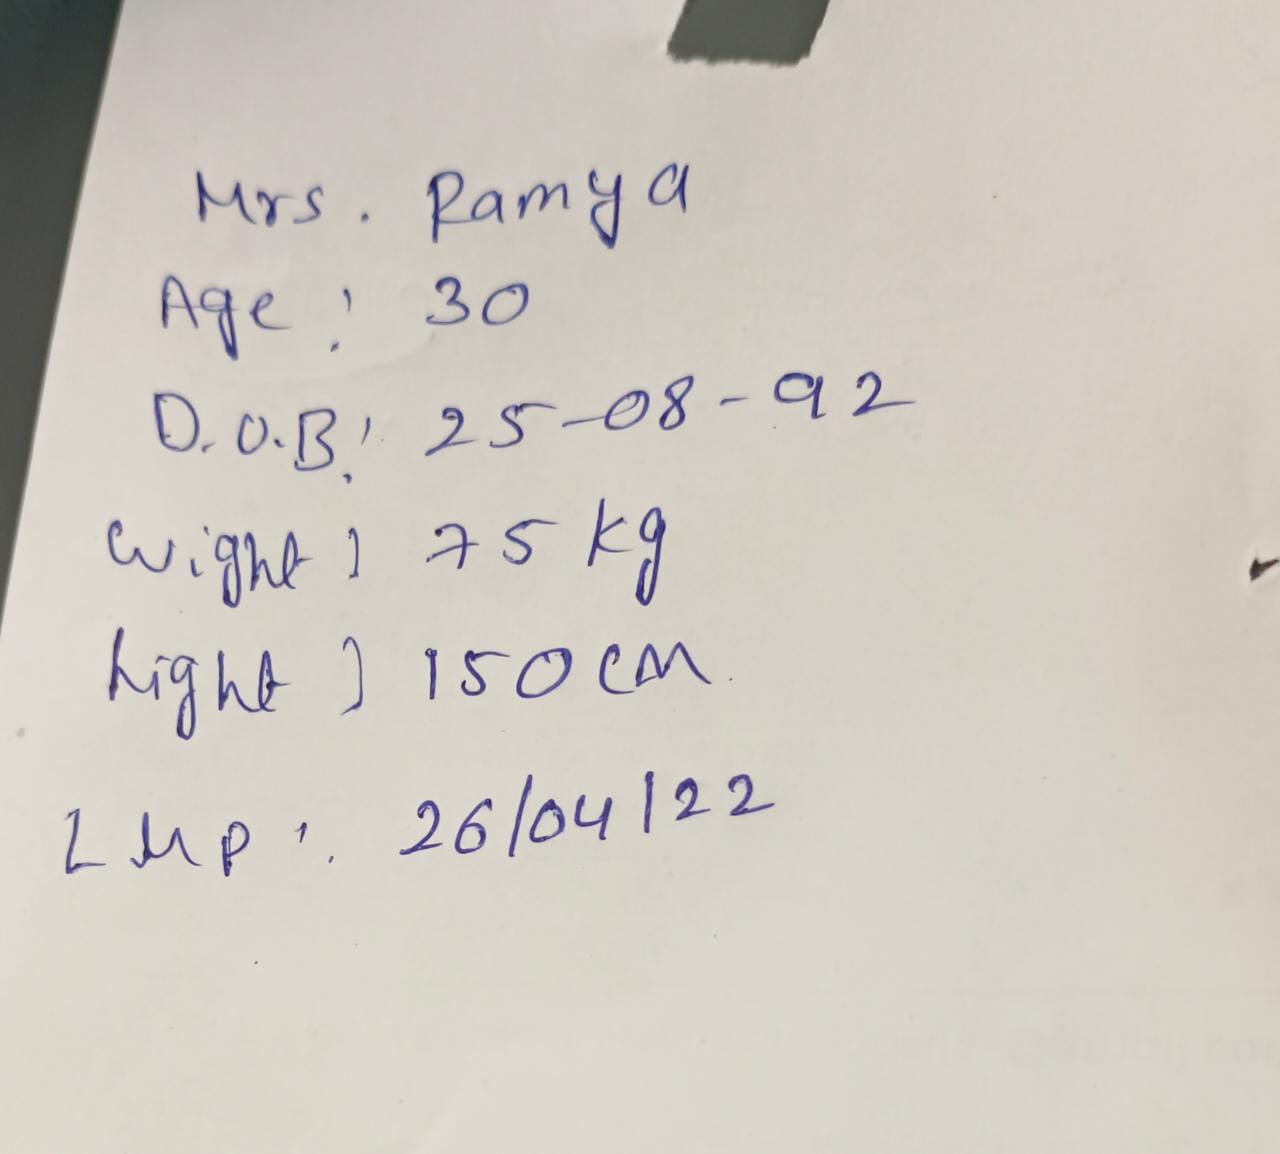 Mrs. Ramya
Age: 30
D.O.B: 25-08-92
wight: 75 kg
hight: 150 cm.
LMP: 26/04/22